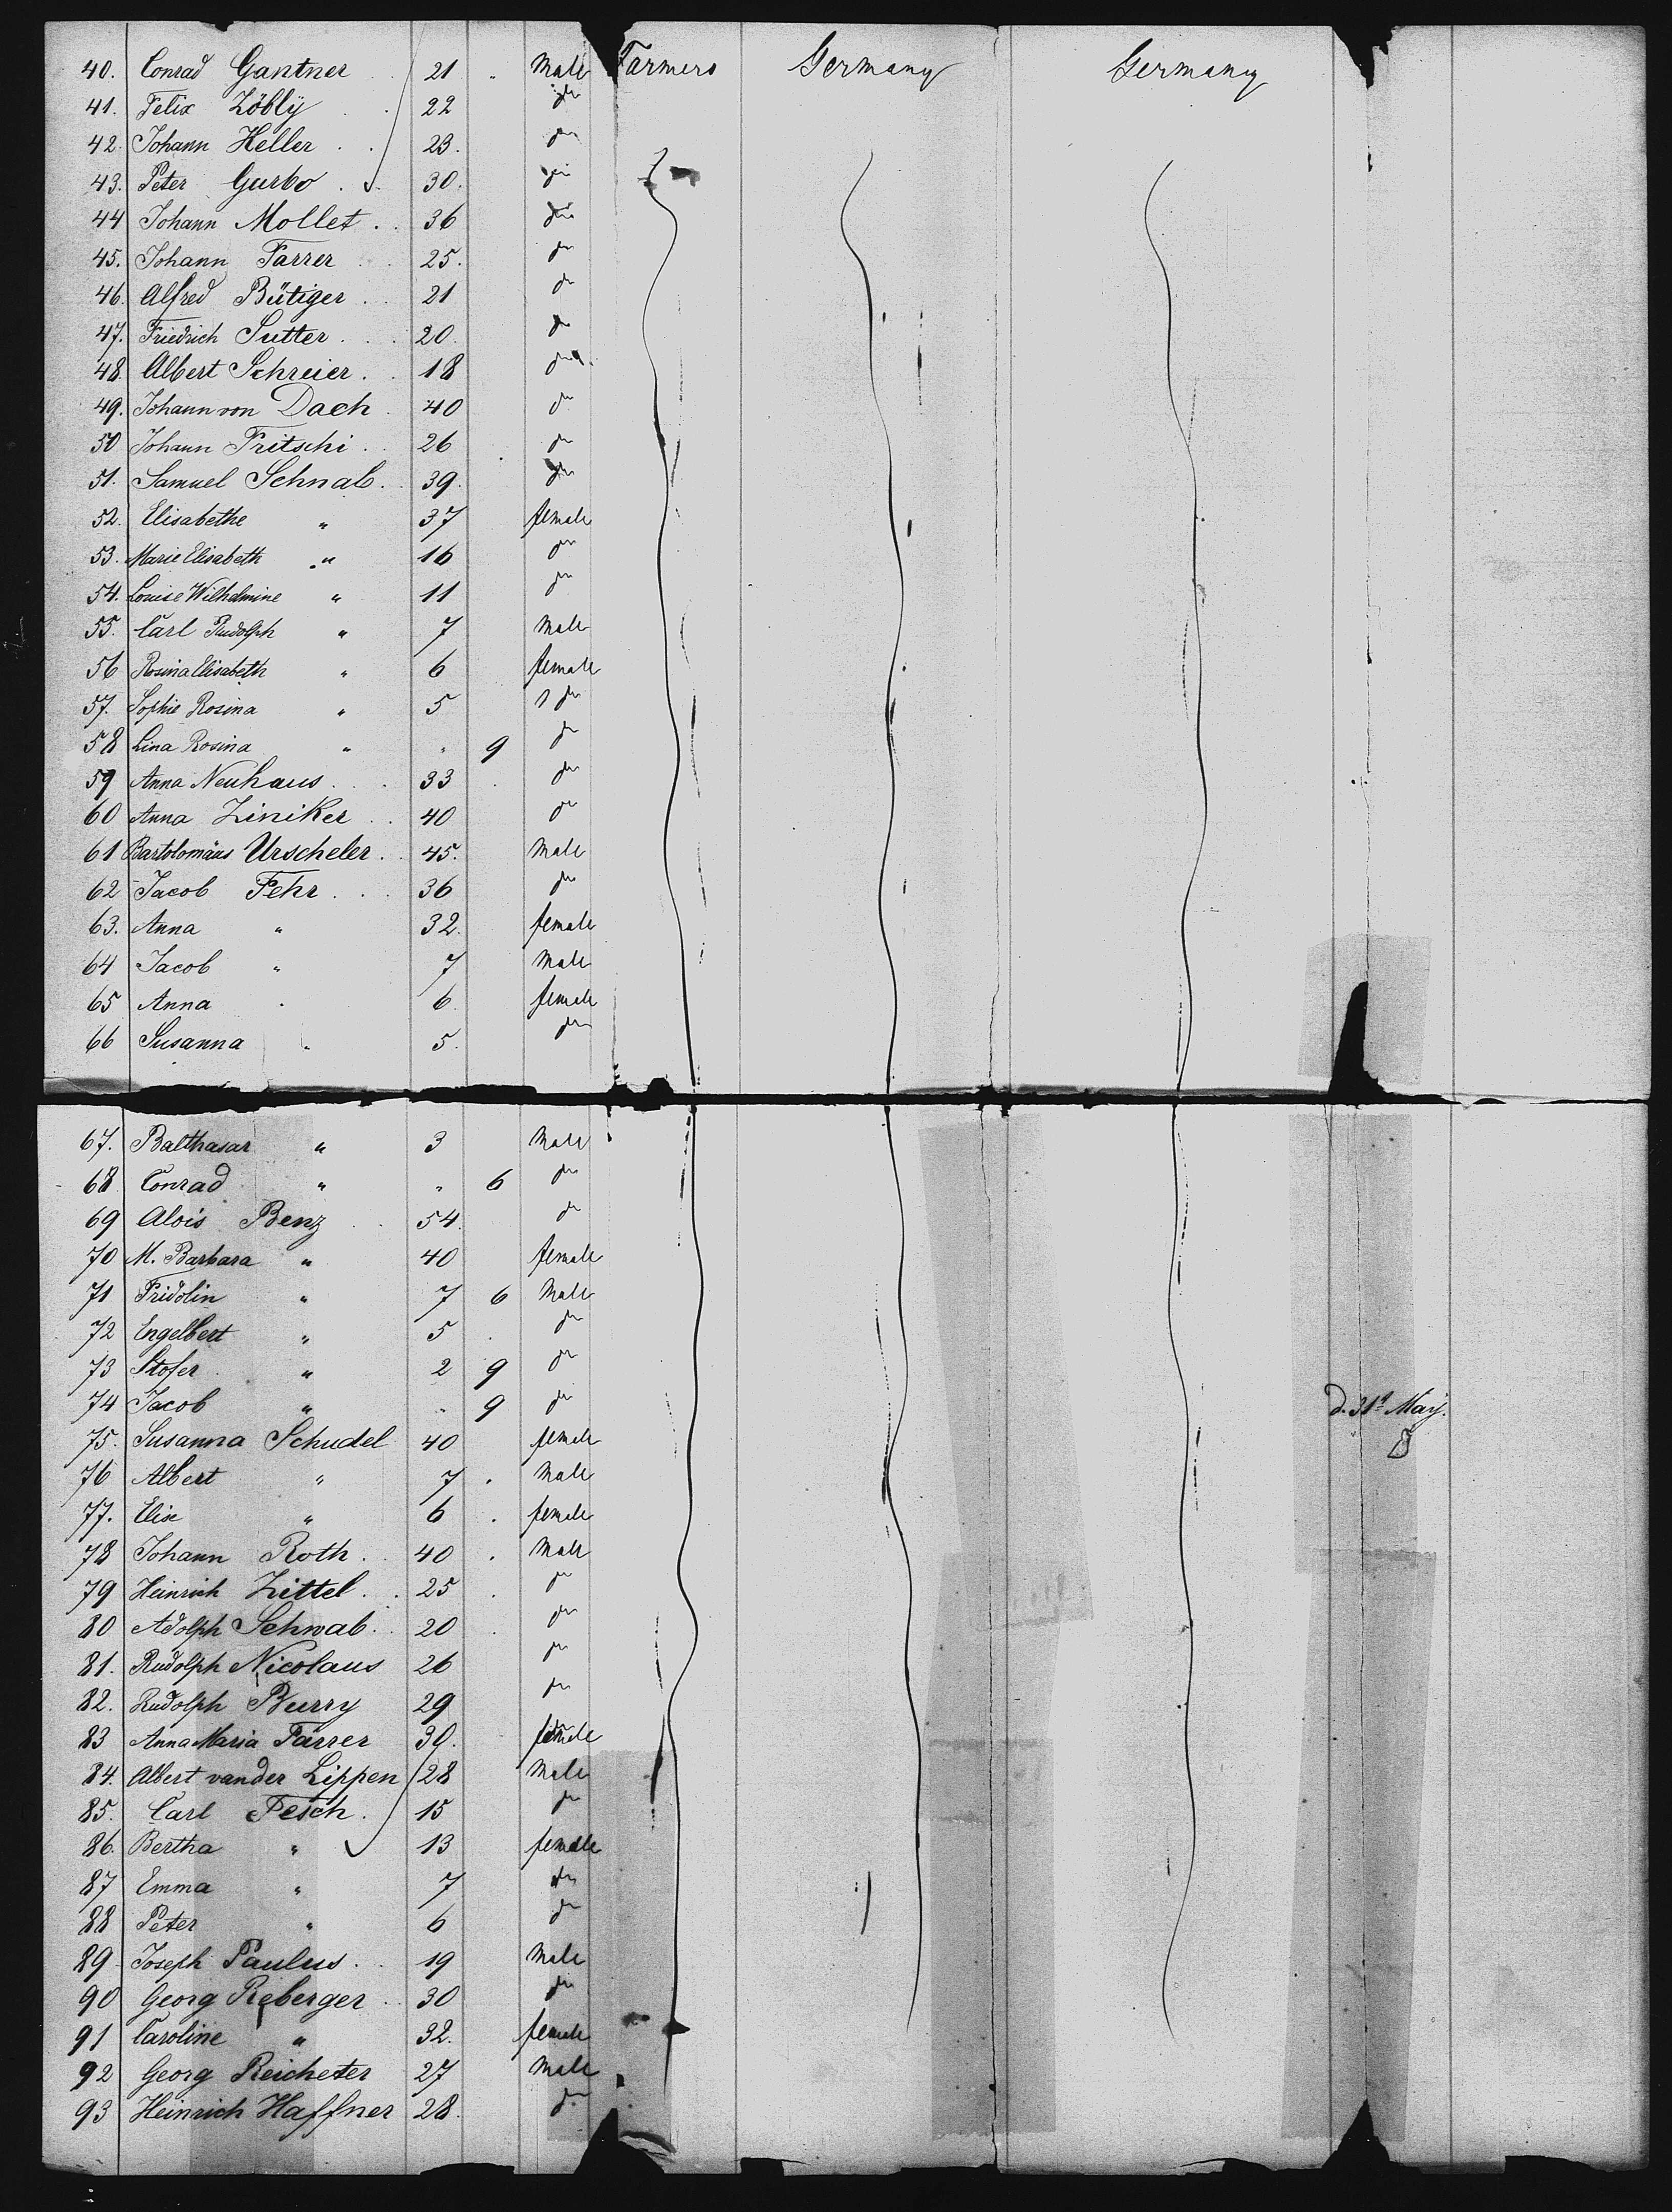 40. Conrad Gantner 21 " Male Farmers Germany Germany
41. Felix Zöblÿ 22 do
42. Johann Heller 23. do
43. Peter Gurbo 30. do
44 Johann Mollet 36 do
45. Johann Farrer 25. do
46. Alfred Bütiger 21 do
47. Friedrich Sutter 20. do
48. Albert Schreier 18 do
49. Johann von Dach 40 do
50 Johann Fritschi 26 do
51. Samuel Schnab. 39. do
52. Elisabethe " 37 female
53. Marie Elisabeth " 16 do
54. Louise Wilhelmine " 11 do
55. Carl Rudolph " 7 Male
56 Rosina Elisabeth " 6 female
57. Sophie Rosina " 5 do
58 Lina Rosina " " 9 do
59 Anna Neuhaus 33 do
60 Anna Ziniker 40 do
61 Bartolomäus Urscheler 45. Male
62 Jacob Fehr 36 do
63. Anna " 32. female
64 Jacob " 7 Male
65 Anna " 6. female
66 Susanna " 5. do
67. Balthasar " 3 Male
68 Conrad " " 6 do
69 Alois Benz 54. do
70 M. Barbara " 40 female
71 Fridolin " 7 6 Male
72 Engelbert " 5 do
73 Stofer " 2 9 do
74 Jacob " " 9 do d. 31t May.
75. Susanna Schudel 40 female
76 Albert " 7 Male
77. Elise " 6 female
78 Johann Roth 40 Male
79 Heinrich Zittel 25 do
80 Adolph Schwab 20 do
81. Rudolph Nicolaus 26 do
82. Rudolph Burry 29 do
83 Anna Maria Farrer 30. female
84. Albert vander Lippen 28 Male
85. Carl Fesch 15 do
86. Bertha " 13 female
87 Emma " 7 do
88 Peter " 6 do
89 Joseph Paulus 19 Male
90 Georg Reberger 30 do
91 Caroline " 32. female
92 Georg Reicheter 27 Male
93 Heinrich Haffner 28. do